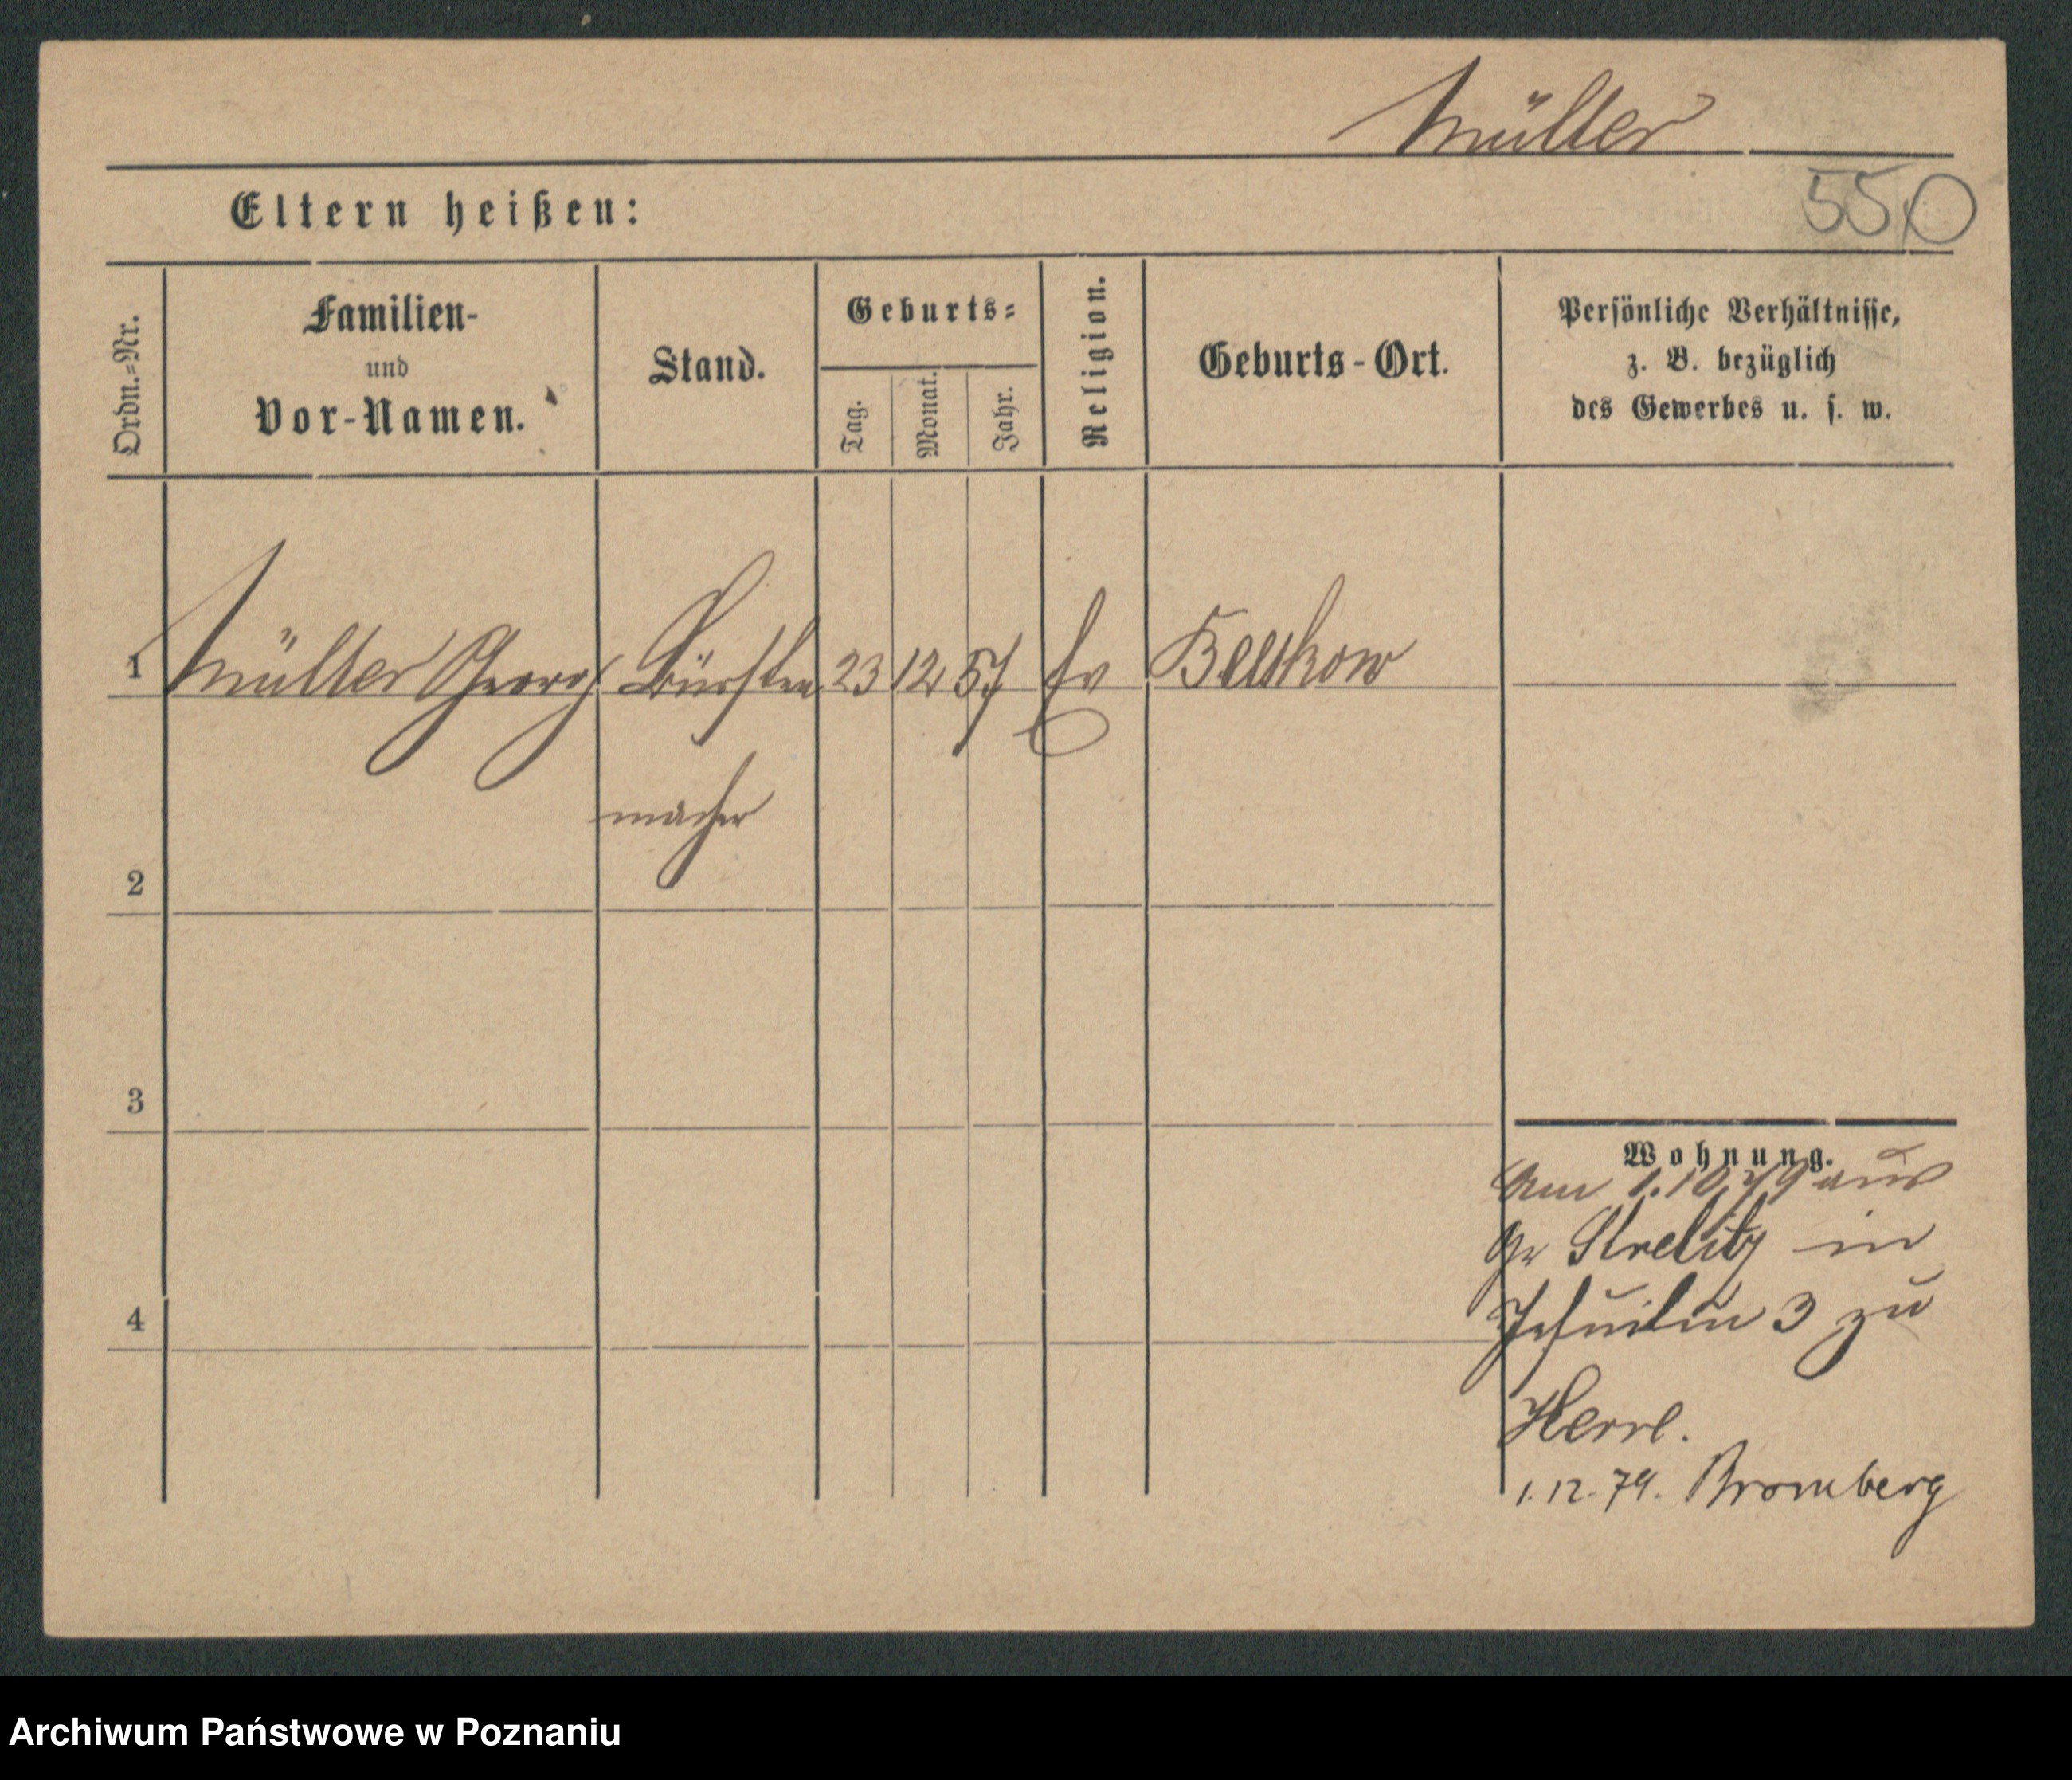 Müller
550
Eltern heißen:
Ordn.=Nr.
Familien-
und
Vor-Namen.
Stand.
Geburts=
Tag.
Monat.
Jahr.
Religion.
Geburts-Ort.
Persönliche Verhältnisse,
z. B. bezüglich
des Gewerbes u. s. w.
1 Müller Georg Bürsten 23 12 57 Ev Beeskow
macher
2
3
4
Wohnung.
Am 1.10.79 aus
Gr Strelitz in
Jesuiten 3 zu
1.12.79. Bromberg
Archiwum Państwowe w Poznaniu